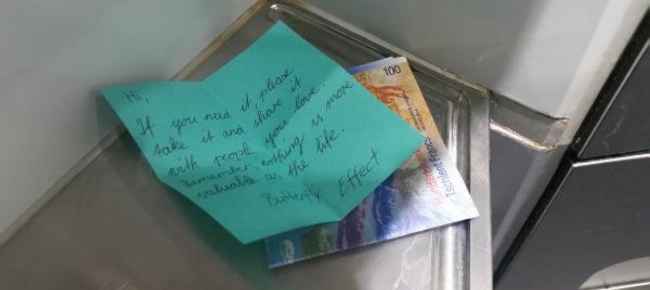 Hi,
If you need it, please
take it and share it
with people you love.
Remember, nothing is more
valuable as the life.
Butterfly Effect
100
Tschient Francs